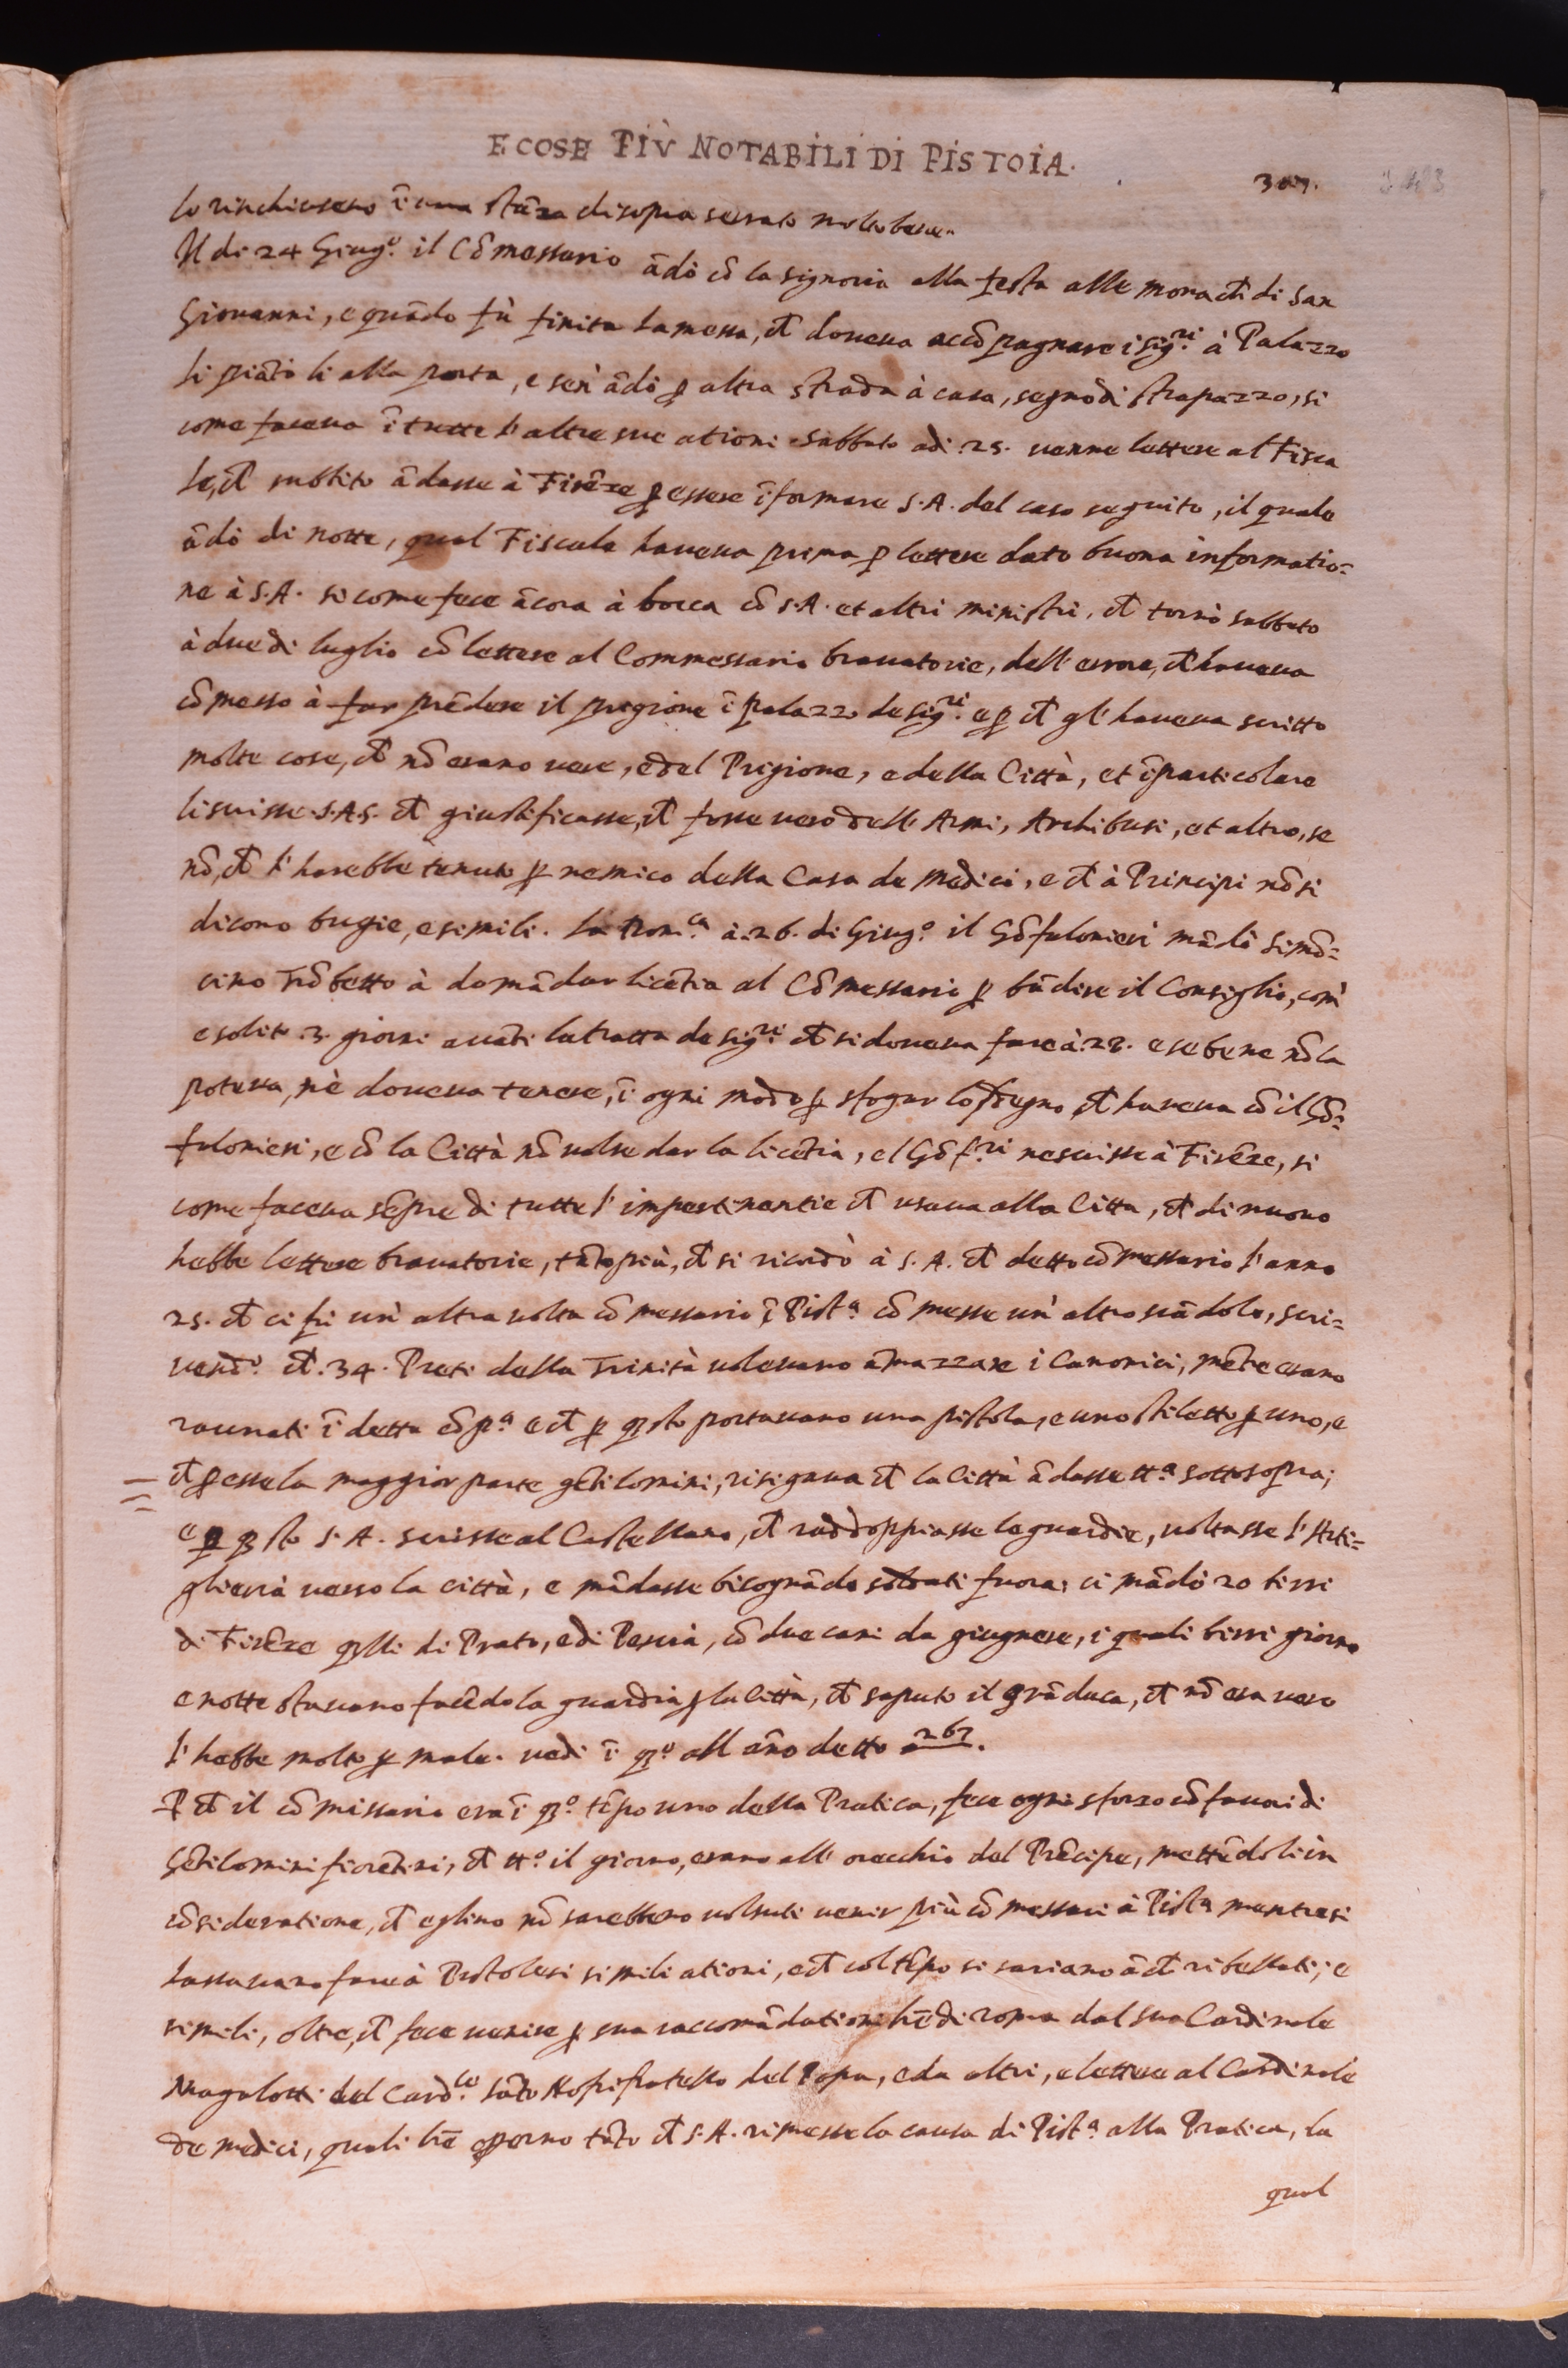 E COSE PIÙ NOTABILI DI PISTOIA.
307.
lo rinchiusero ī una stāza disopra serrato molto bene.
Il di 24 Giug.º il Cōmessario ādò cō la signoria alla festa alle monach̄ di San
Giovanni, e quādo fù finita la messa, ch̄ doveva accōpagnare i sig.ri à Palazzo
li piātò lì alla porta, e sen' ādò ꝑ altra strada à casa, segno di strapazzo, si
come faceva ī tutte l'altre sue ationi. Sabbato adi .25. venne lettere al Fisca
le, ch̄ subbito ādasse à Firēze ꝑ essere īformare S.A. del caso seguito, il quale
ādò di notte, qual Fiscale haveva prima ꝑ lettere dato buona informatio=
ne à S.A. si come fece ācora à bocca cō S.A. et altri ministri, ch̄ tornò sabbato
à due di luglio cō lettere al Commessario bravatorie, dell' errore, ch̄ haveva
cōmesso à far prēdere il prigione ī palazzo de sig.ri e ꝑ ch̄ gl' haveva scritto
molte cose, ch̄ nō erano vere, e del Prigione, e della Città, et īparticolare
li scrisse S.A.S. ch̄ giustificasse, ch̄ fosse vero dell' Armi, Archibusi, et altro, se
nō, ch̄ l'harebbe tenuto ꝑ nemico della Casa de Medici, e ch̄ à Principi nō si
dicono bugie, e simili. La Dom.ca à .26. di Giug.º il Gōfalonieri mādò Simō=
cino Trōbetto à domādar licētia al Cōmessario ꝑ bādire il Consiglio, com'
è solito .3. giorni avāti la tratta de sig.ri ch̄ si doveva fare à .28. e se bene nō la
poteva, nè doveva tenere, ī ogni modo ꝑ sfogar lo sdegno ch̄ haveva cō il Gō=
falonieri, e cō la Città nō volse dar la licētia, e l Gōf.ri ne scrisse à Firēze, si
come faceva sēpre di tutte l'impertinentie ch̄ usava alla Citta, ch̄ di nuovo
hebbe lettere bravatorie, tāto più, ch̄ si ricordò à S.A. ch̄ detto cōmessario l'anno
25. ch̄ ci fù un' altra volta cōmessario ī Pist.ª cōmesse un' altro scādolo, scri=
vend.º ch̄ .34. Preti della Trinità volevano āmazzare i Canonici, mētre erano
raunati ī detta cōp.ª e ch̄ ꝑ q̄sto portavano una pistola, e uno stiletto ꝑ uno, e
ch̄ ꝑ esse la maggior parte gētilomini, risigava ch̄ la Città ādasse tt.ª sottosopra;
e ꝑ q̄sto S.A. scrisse al Castellano, ch̄ raddoppiasse le guardie, voltasse l'Arti=
glieria verso la città, e mādasse bisognādo soldati fuora; ci mādò 20 birri
di Firēze q̄lli di Prato, e di Pescia, cō due cani da giugnere, i quali birri giorno
e notte stavano facēdo la guardia ꝑ la Città, ch̄ saputo il grāduca, ch̄ nō era vero
l'hebbe molto ꝑ male. vedi ī q̄º all' āno detto a 267.
P ch̄ il cōmissario era ī q̄º tēpo uno della Pratica, fece ogni sforzo cō favori di
Gētilomini fiorētini, ch̄ tt.º il giorno, erano all' orecchio del Prēcipe, mettēdoli in
cōsideratione, ch̄ eglino nō sarebbero voluti venir più cōmessari à Pist.ª mentre si
lassavano fare à Pistolesi simili ationi, e ch̄ col tēpo si sariano āch̄ ribellati; e
simili, oltre, ch̄ fece venire ꝑ sua raccomādationi fī di roma dal suo Cardinale
Magalotti dal Card.le sāto Hofri fratello del Papa, e da altri, e lettere al Cardinale
de medici, quali bē operno tāto ch̄ S.A. rimesse la causa di Pist.ª alla Pratica, la
qual